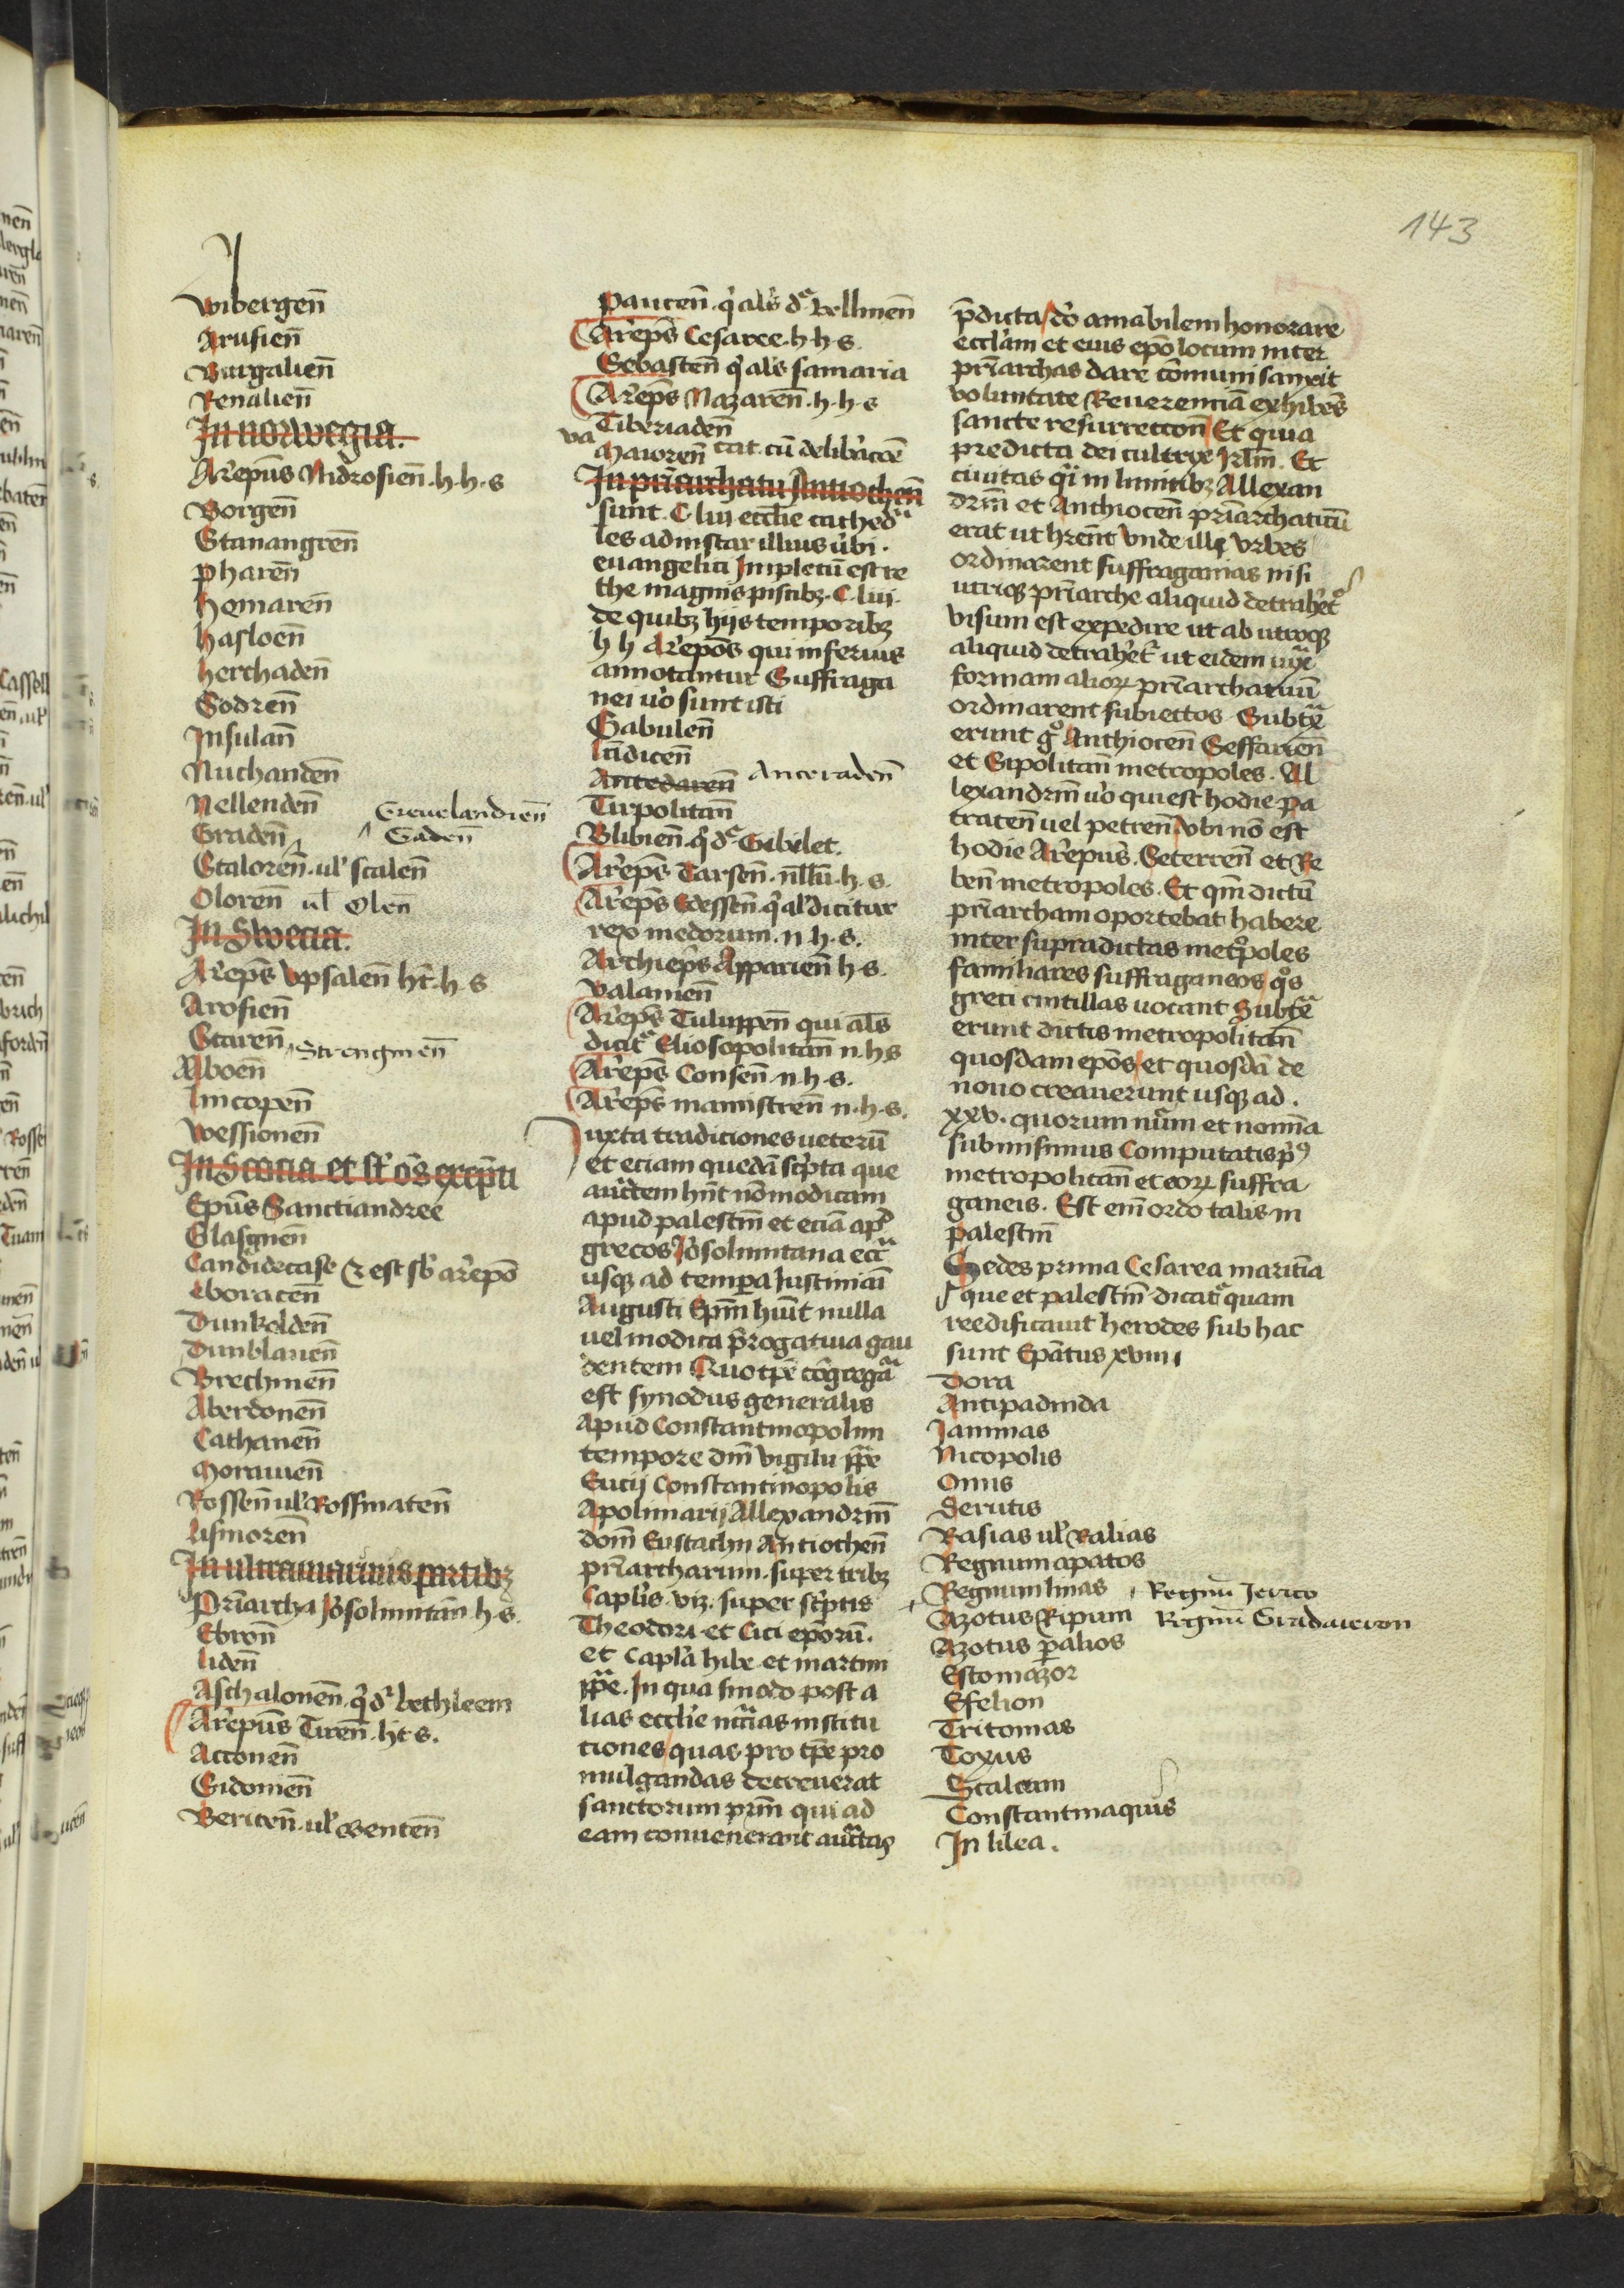 143
wibergen̄
Arusien̄
Burgalien̄
Renalien̄
In norwegia.
Ar̄epūs Nidrosien̄ .h.h.s
Borgen̄
Stanangren̄
pharen̄
hemaren̄
hasloen̄
herthaden̄
Sodren̄
Insulan̄
Nuchanden̄
Nellenden̄
Gieuelandien̄
Graden̄ Gaden̄
Staloren̄ . ul' stalen̄
Oloren̄ ul' Olen̄
In Swecia.
Ar̄epūs vpsalen̄ ht̄.h.s
Arosien̄
Staren̄ Strengmen̄
Alboen̄
lincopen̄
wessionen̄
In Scocia et st̄ ōs excepti
Epūs Sanctiandree
Glasguen̄
Candidecase & est sb' ar̄epō
eboracen̄
Dunkelden̄
Dunblanen̄
Brechinen̄
Aberdonen̄
Cathanen̄
Morauien̄
Rossen̄ ul' Rossmaten̄
lismoren̄
In ultramarinis partibz
Pr̄iarcha Jerosolimitan̄ h.s.
Ebron̄
liden̄
Aschalonen̄ . q' dr̄ bethleem
Ar̄epūs Tiren̄ . ht s.
Acconen̄
Sidonien̄
Beriten̄ . ul'
paucen̄ . q' al's dr̄ bellinen̄
Ar̄epūs Cesaree . h h s.
Sebasten̄ q' al's samaria
Ar̄epūs Nazaren̄ . h.h.s
Tiberiaden̄
va cat . cū delib'acōe
Maioren̄
In pr̄iarchatu Antiochen̄
sunt . C liij eccl'ie cathedra
les ad instar illius ubi .
euangelici Impletū est re
the magnis piscibz . C liij .
de quibz hijs temporibz
h h Ar̄epōs qui inferius
annotantur Suffraga
nei uo sunt isti
Gabulen̄
ladicen̄
Antedaren̄ Anteraden̄
Tirpolitan̄
Blibien̄ . q' dr̄ Gibelet .
Ar̄epūs Tarsen̄ . nllū .h.s.
Ar̄epūs Edessen̄ q' al' dicitur
rex medorum . n h.s.
Archiepūs Apparien̄ h.s.
valanien̄
Ar̄epūs Tuluppen̄ qui al's
dicit' Eliosopolitan̄ n.h.s
Ar̄epūs Consen̄ . n.h.s.
Ar̄epūs mamistren̄ n.h.s.
Juxta tradiciones ueterū
et eciam quedā sc'pta que
auctem hn̄t nō modicam
apud palestin̄ et eciā apud
grecos Jerosolimitana eccl'ia
usqz ad tempora Justiniani
Augusti Epm̄ huit nulla
uel modica prerogatiua gau
dentem Quo tpē cōgregata
est synodus generalis
Apud Constantinopolim
tempore dn̄i vigilii pp̄e
Eutij Constantinopolis
Apolinarij Allexandrin̄
dom̄ Eustachii Antiochen̄
pr̄iarcharum . super tribz
Capl'is . viz . super sc'ptis
Theodori et Cici epōrum .
et capl'a hibe et martini
pp̄e . In qua sinodo post a
lias eccl'ie nc̄rias institu
tiones quas pro tpē pro
mulgandas decreuerat
sanctorum prm̄ qui ad
eam conuenerant auctas
p̄dicta do amabilem honorare
eccl'am et eius epō locum inter
pr̄iarchas dare cōmuni sanxit
voluntate Reuerenciā exhibēs
sancte resurreccon̄ Et quia
predicta dei cultrix Jrlm̄ . Et
ciuitas q̄ in limitibz Allexan
drin̄ et Anthiocen̄ pr̄iarchatuū
erat ut hrēnt vnde ille vrbes
ordinarent suffraganias nisi
utriqz pr̄iarche aliquid detrahet'
visum est expedire ut ab utroqz
aliquid detrahet' ut eidem iuxta
formam alioꝝ pr̄iarchatuū
ordinarent subiectos . Subtracte
erunt g° Anthiocen̄ Seffarien̄
et Sipolitan̄ metropoles . Al
lexandrin̄ uo qui est hodie pa
tracen̄ uel petren̄ vbi nō est
hodie Ar̄epus . Seterren̄ et Re
ben̄ metropoles . Et qm̄ dictū
pr̄iarcham oportebat habere
inter supradictas metropoles
familiares suffraganeos q°s
greci cintillas uocant Subtracte
erunt dictis metropolitan̄
quosdam epōs et quosdā de
nouo creauerunt usqz ad .
xxv . quorum num̄ et nomīa
submisimus Computatis pr'
metropolitan̄ et eoꝝ suffra
ganeis . Est em̄ ordo talis in
palestin̄
Sedes prima Cesarea maritia
que et palestin̄ dicat' quam
reedificauit herodes sub hac
sunt Ep̄atus xviiii
Dora
Antipadinda
Jammas
Nicopolis
Onus
Serutis
Rasias ul' Ralias
Regnum apatos
Regnum linas Regnū Jerico
Azotus Ripum Regnū Gradaieron
Azotus palios
Estomazor
Efelion
Tritomas
Toxus
Scalcum
Constantinaquis
In lilea .